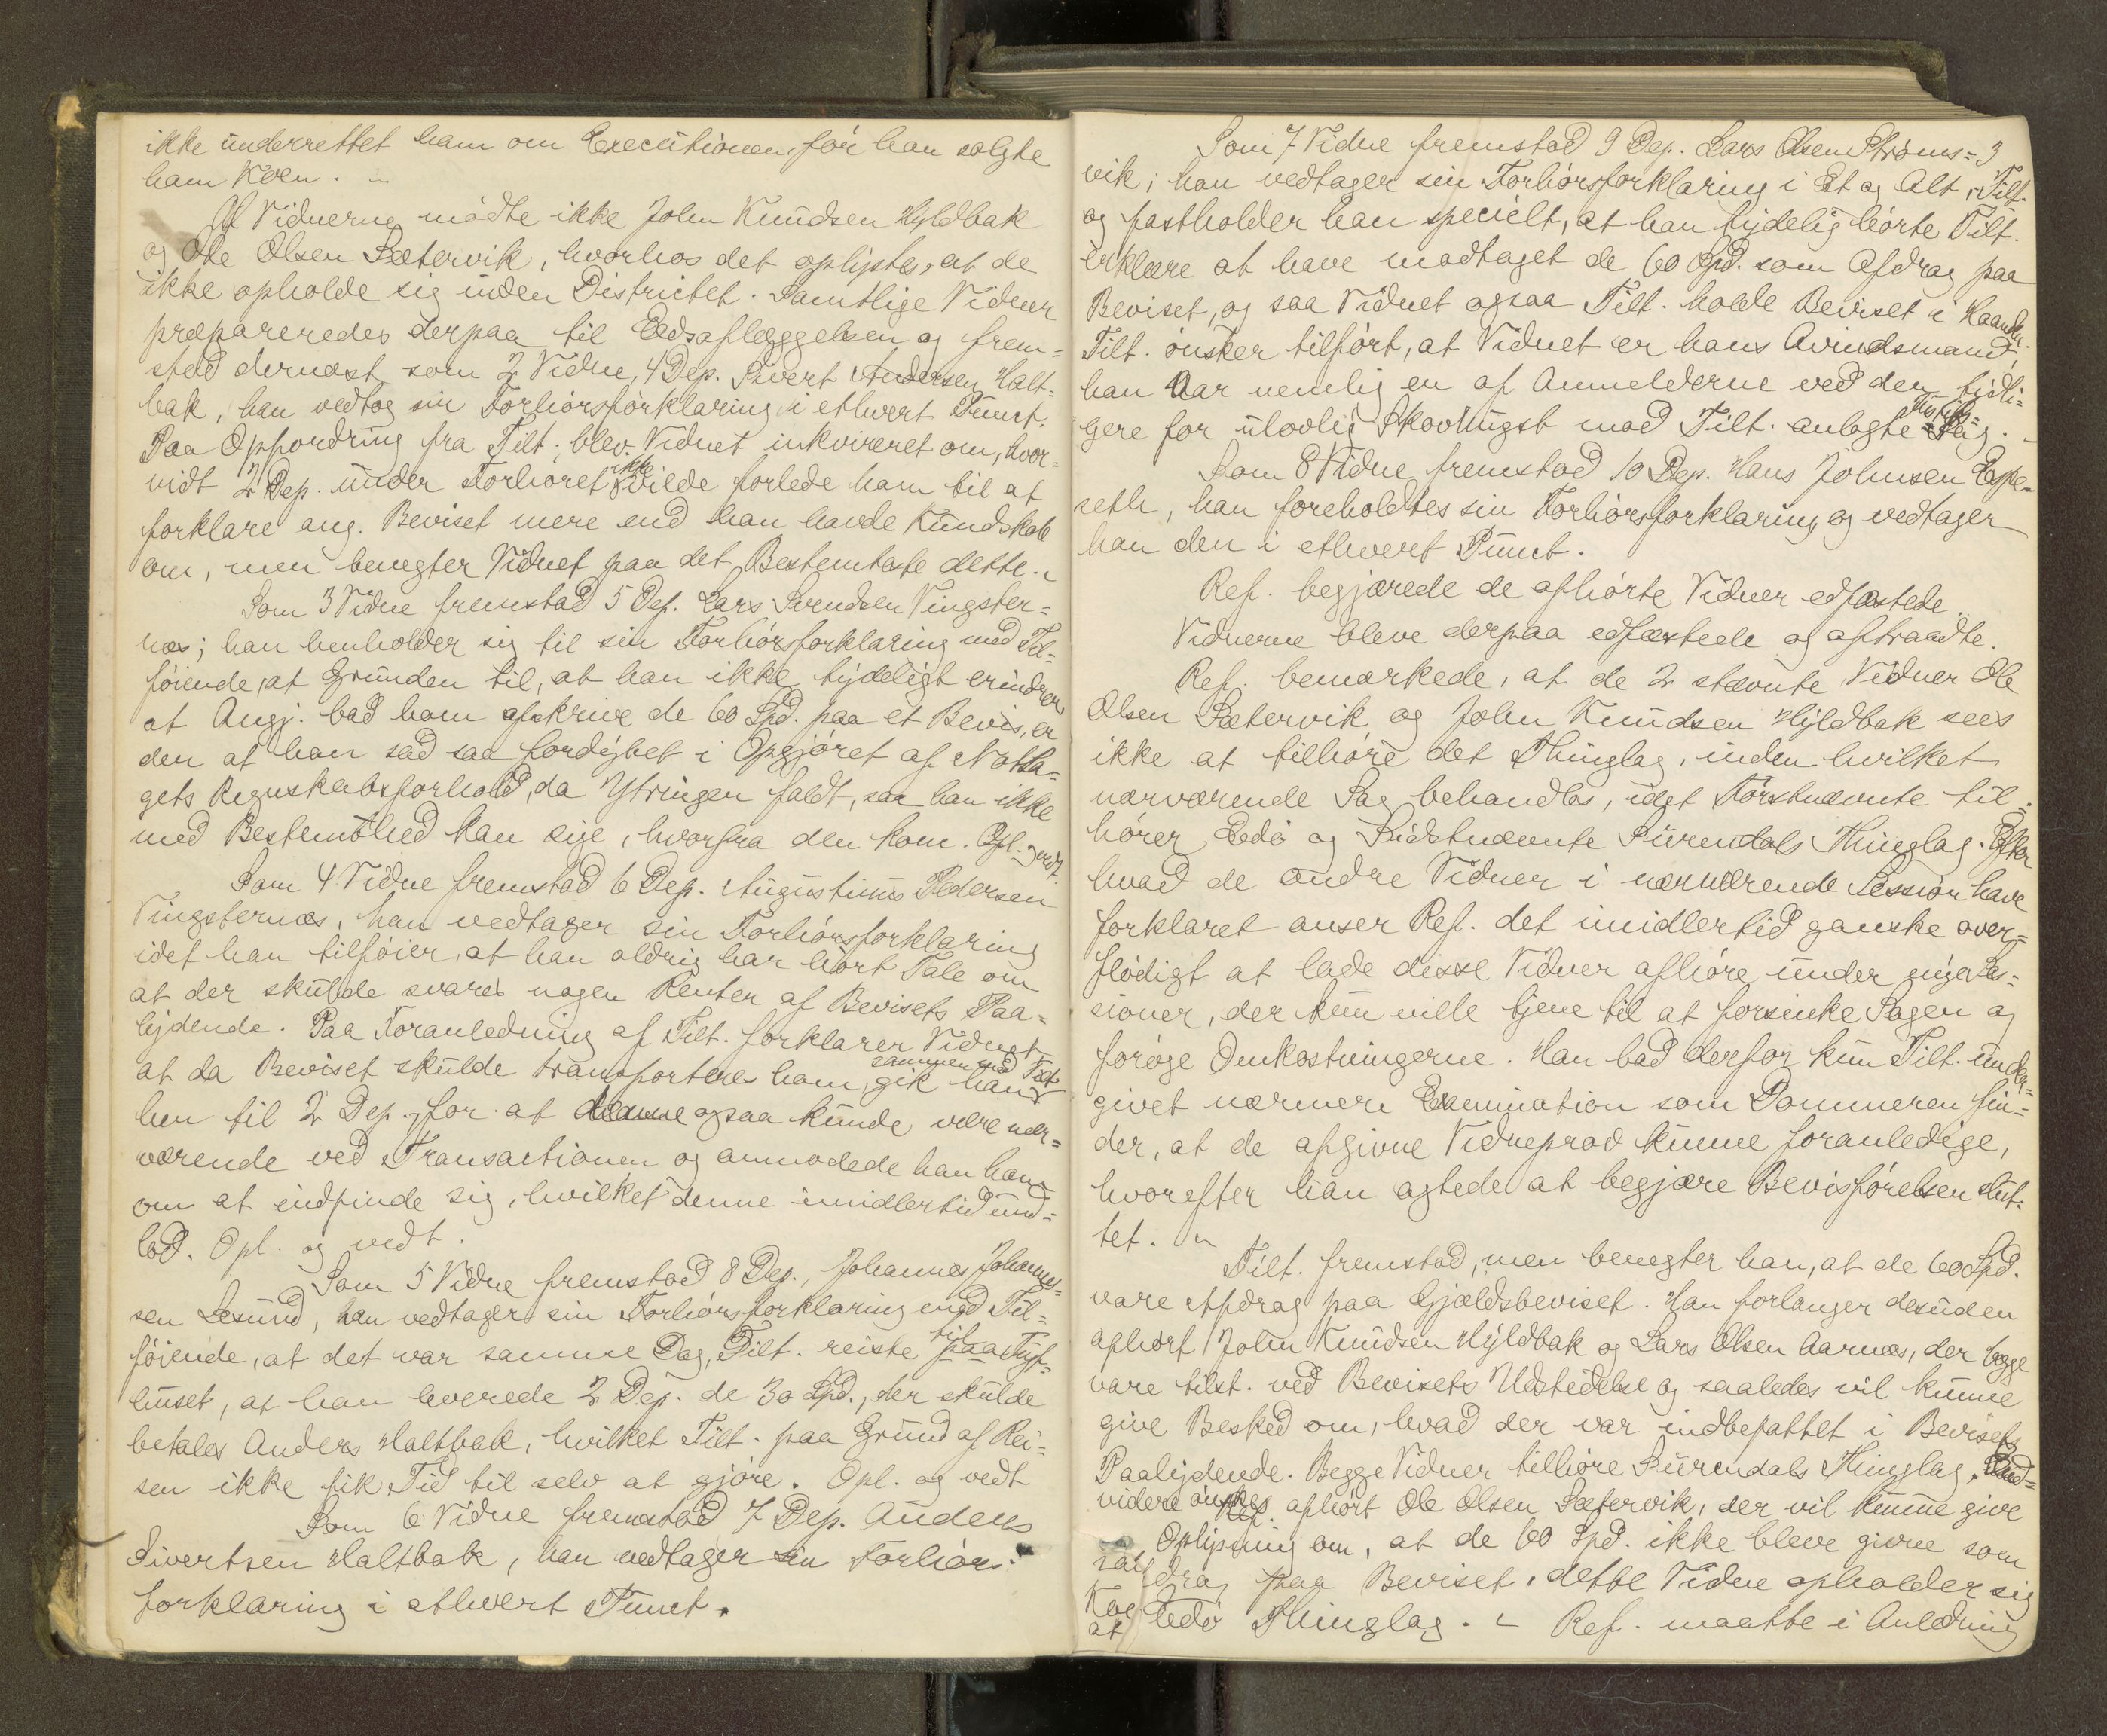 ikke underrettet ham om Executionen, før han solgte
ham Koen.
Af Vidnerne mødte ikke John Knudsen Hyldbak
og Ole Olsen Sætervik, hvorhos det oplystes, at de
ikke opholde sig inden Districtet. Samtlige Vidner
præpareredes derpaa til Eedsaflæggelsen og frem=
stod dernæst som 2 Vidne, 4 Dep. Sivert Andersen Halt=
bak, han vedtog sin Forhørsforklaring i ethvert Punct.
Paa Opfordring fra Tilt. blev Vidnet inkvireret om, hvor=
vidt 2 Dep. under Forhøret ikke vilde forlede ham til at
forklare ang. Beviset mere end han havde Kundskab
om, men benegter Vidnet paa det Bestemteste dette.
Som 3 Vidne fremstod 5 Dep. Lars Svendsen Vingster=
næs; han henholder sig til sin Forhørsforklaring med Til=
føiende, at Grunden til, at han ikke tydeligt erindrer
at Angj. bad ham afskrive de 60 Spd. paa et Bevis, er
den at han sad saa fordybet i Opgjøret af Notla=
gets Regnskabsforhold, da Ytringen faldt, saa han ikke
med Bestemthed kan sige, hvorfra den kom. Opl. vedt.
Som 4 Vidne fremstod 6 Dep. Augustinus Pedersen
Vingsternæs, han vedtager sin Forhørsforklaring
idet han tilføier, at han aldrig har hørt Tale om
at der skulde svares nogen Renter af Bevisets Paa=
lydende. Paa Foranledning af Tilt. forklarer Vidnet
at da Beviset skulde transporteres ham, gik han sammen med Tilt.
hen til 2 Dep., for at denne ogsaa kunde være nær=
værende ved Transactionen og anmodede han ham
om at indfinde sig, hvilket denne imidlertid und=
lod. Opl. og vedt.
Som 5 Vidne fremstod 8 Dep., Johannes Johannes=
sen Lesund, han vedtager sin Forhørsforklaring med Til=
føiende, at det var samme Dag, Tilt. reiste til paa Tugt=
huset, at han leverede 2 Dep. de 30 Spd., der skulde
betales Anders Haltbak, hvilket Tilt. paa Grund af Rei=
sen ikke fik Tid til selv at gjøre. Opl. og vedt
Som 6 Vidne fremstod 7 Dep. Anders
Sivertsen Haltbak, han vedtager sin Forhørs=
forklaring i ethvert Punct.
Som 7 Vidne fremstod 9 Dep. Lars Olsen Strøms= 3
vik; han vedtager sin Forhørsforklaring i Et og Alt, Tilt.
og fastholder han specielt, at han tydelig hørte Tilt.
erklære at have modtaget de 60 Spd. som Afdrag paa
Beviset, og saa Vidnet ogsaa Tilt. holde Beviset i Haanden.
Tilt. ønsker tilført, at Vidnet er hans Avindsmand,
han var nemlig en af Anmelderne ved den tidli=
gere for ulovlig Skovhugst mod Tilt. anlagte Sag.
Som 8 Vidne fremstod 10 Dep. Hans Johnsen Espe=
seth, han foreholdtes sin Forhørsforklaring og vedtager
han den i ethvert Punct.
Ref. begjærede de afhørte Vidner edfæstede.
Vidnerne bleve derpaa edfæstede og aftraadte.
Ref. bemærkede, at de 2 stævnte Vidner Ole
Olsen Sætervik og John Knudsen Hyldbak sees
ikke at tilhøre det Thinglag, inden hvilket
nærværende Sag behandles, idet Førstnævnte til=
hører Edø og Sidstnævnte Surendals Thinglag. Efter
hvad de andre Vidner i nærværende Session have
forklaret anser Ref. det imidlertid ganske over=
flødigt at lade disse Vidner afhøre under nye Ses=
sioner, der kun ville tjene til at forsinke Sagen og
forøge Omkostningerne. Han bad derfor kun Tilt. under=
givet nærmere Examination som Dommeren fin=
der, at de afgivne Vidneprov kunne foranledige,
hvorefter han agtede at begjære Bevisførelsen slut=
tet.
Tilt. fremstod, men benegter han, at de 60 Spd.
vare Afdrag paa Gjældsbeviset. Han forlanger desuden
afhørt John Knudsen Hyldbak og Lars Olsen Aarnæs, der begge
vare tilst. ved Bevisets Udstedelse og saaledes vil kunne
give Besked om, hvad der var indbefattet i Bevisets
Paalydende. Begge Vidner tilhøre Surendals Thinglag. End=
videre ønskes afhørt Ole Olsen Sætervik, der vil kunne give
Oplysning om, at de 60 Spd. ikke bleve givne som
drag paa Beviset, dette Vidne opholder sig
Edø Thinglag. Ref. maatte i Anledning